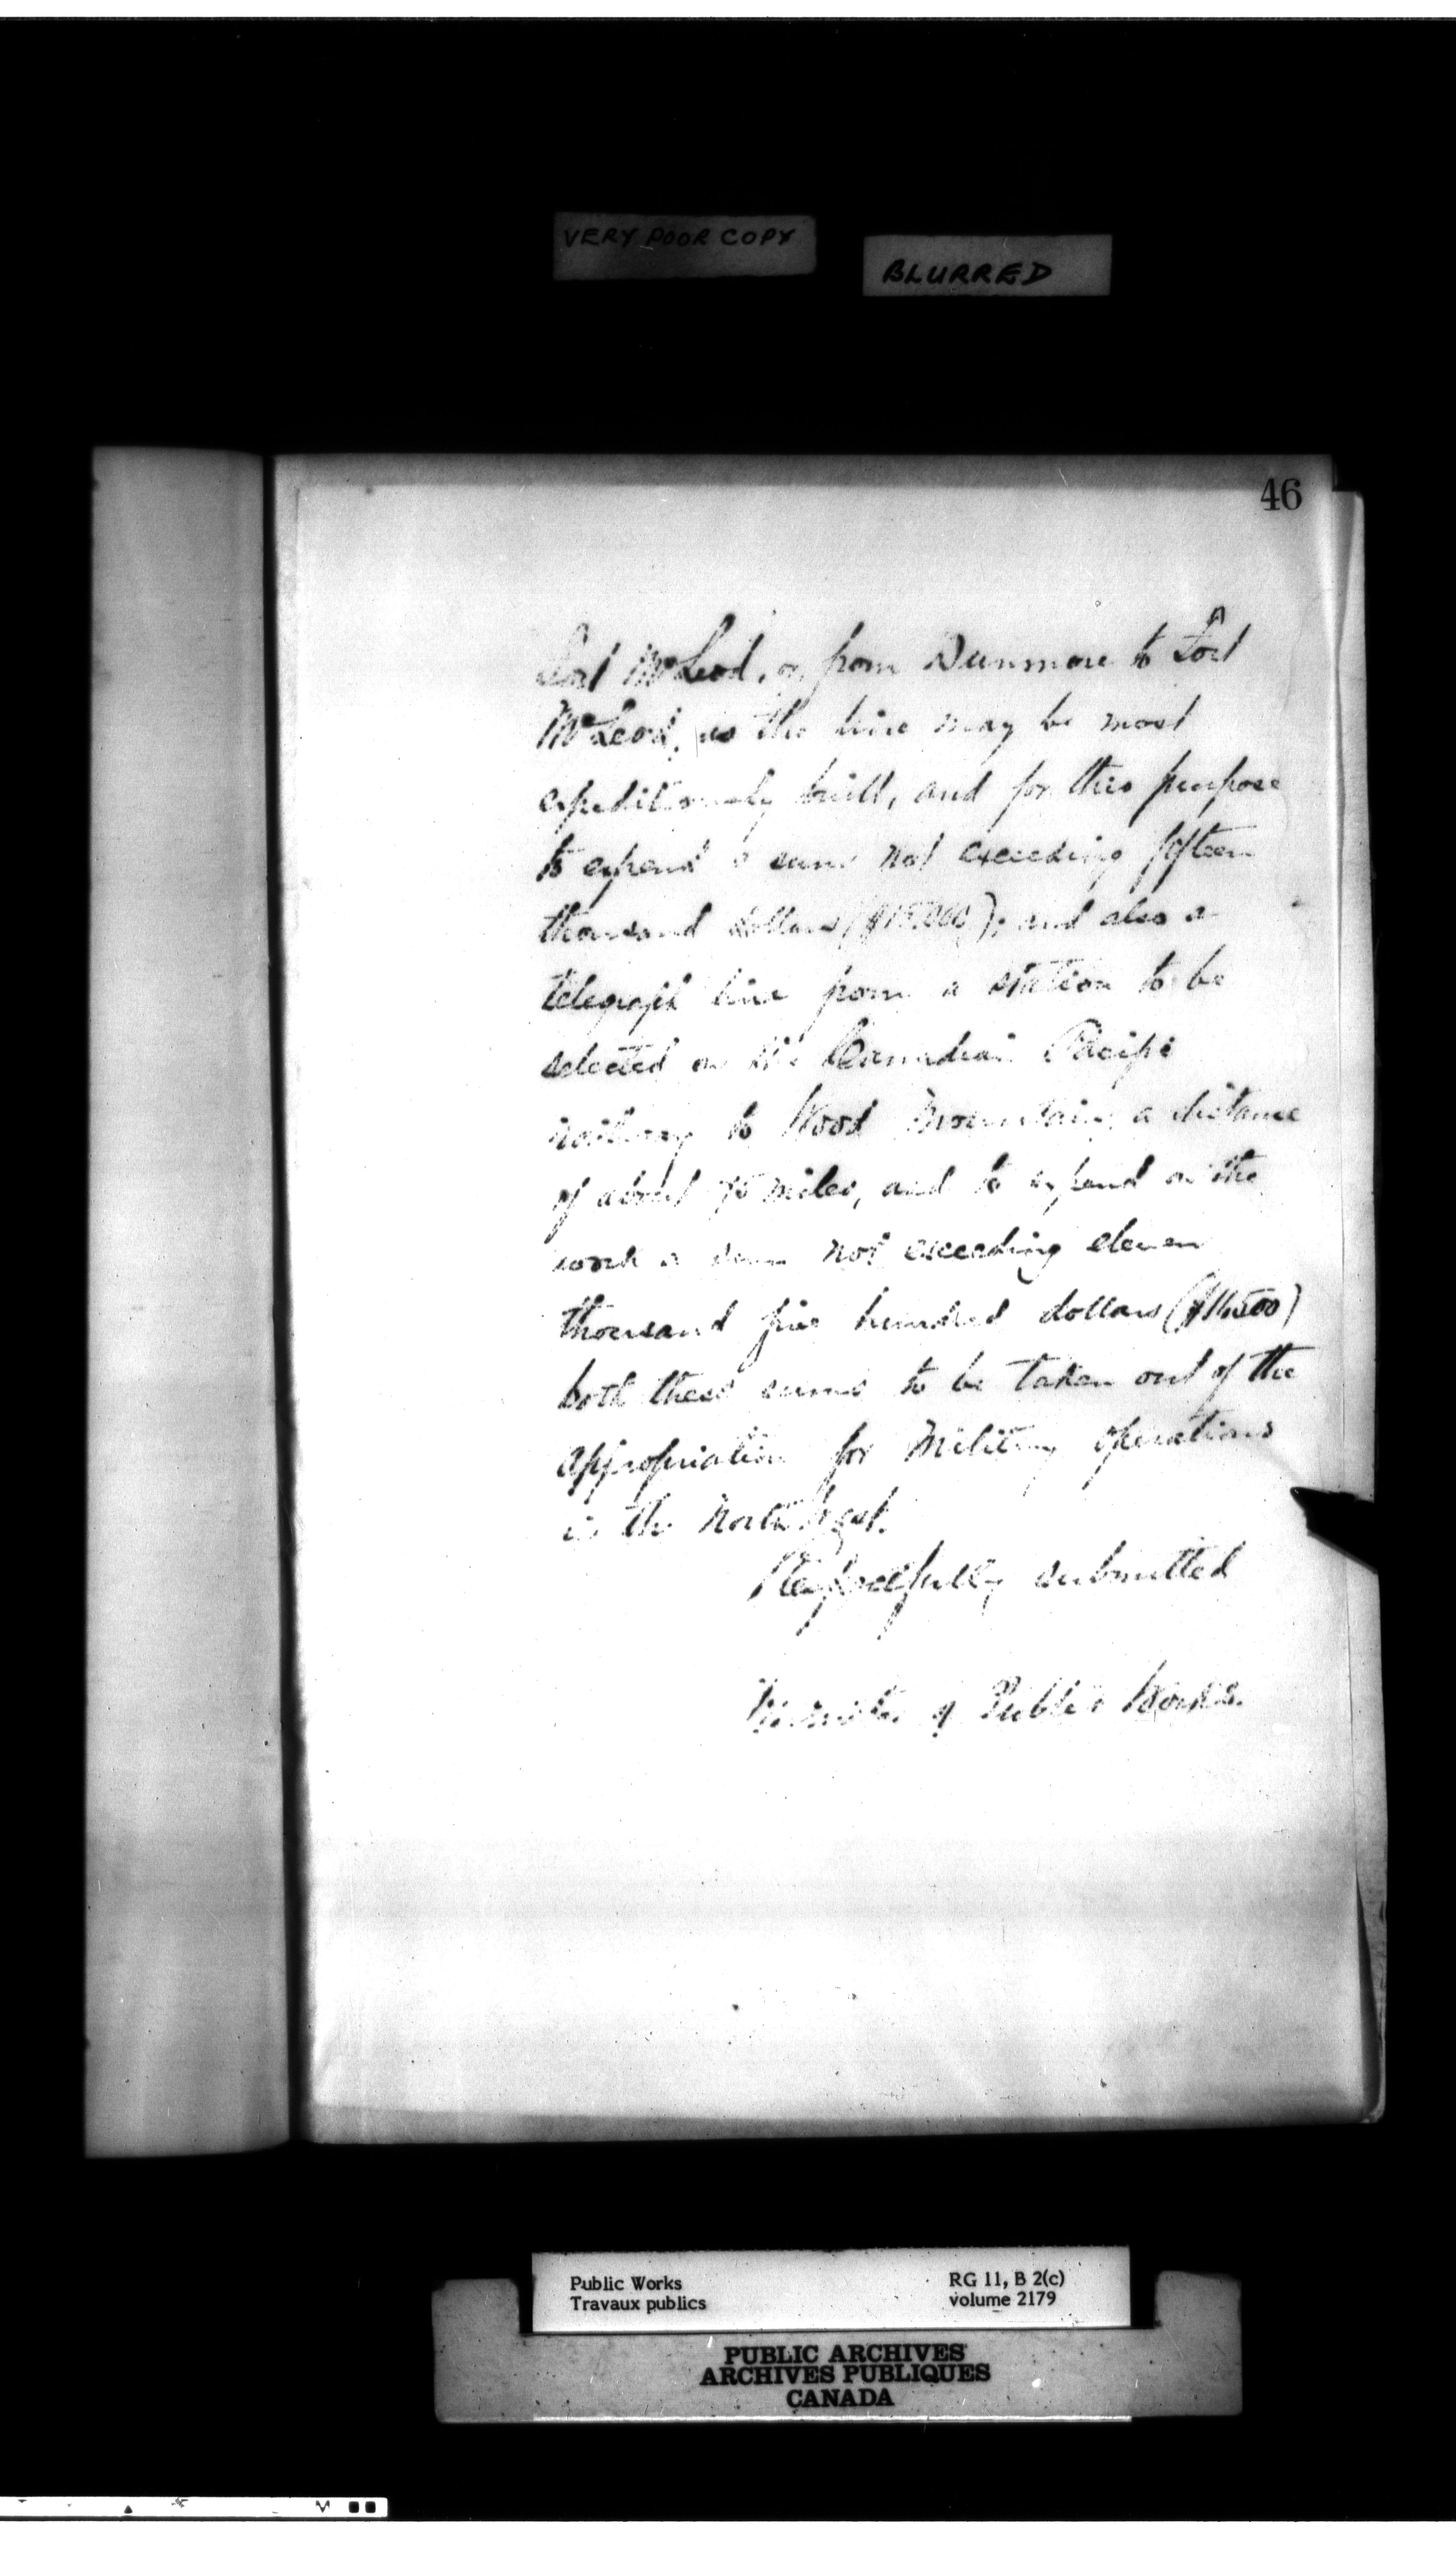 VERY POOR COPY
BLURRED
46
Fort McLeod, or from Dunmore to Fort
McLeod, as the line may be most
expeditiously built, and for this purpose
to expend a sum not exceeding fifteen
thousand dollars ($15.000); and also a
telegraph line from a station to be
selected on the Canadian Pacific
railway to Wood Mountain, a distance
of about miles, and to expend on the
work a sum not exceeding eleven
thousand five hundred dollars ($11,500)
both these sums to be taken out of the
appropriation for Military operations
in the North West.
Respectfully submitted
Minister of Public Works.
Public Works RG 11, B 2(c)
Travaux publics volume 2179
PUBLIC ARCHIVES
ARCHIVES PUBLIQUES
CANADA